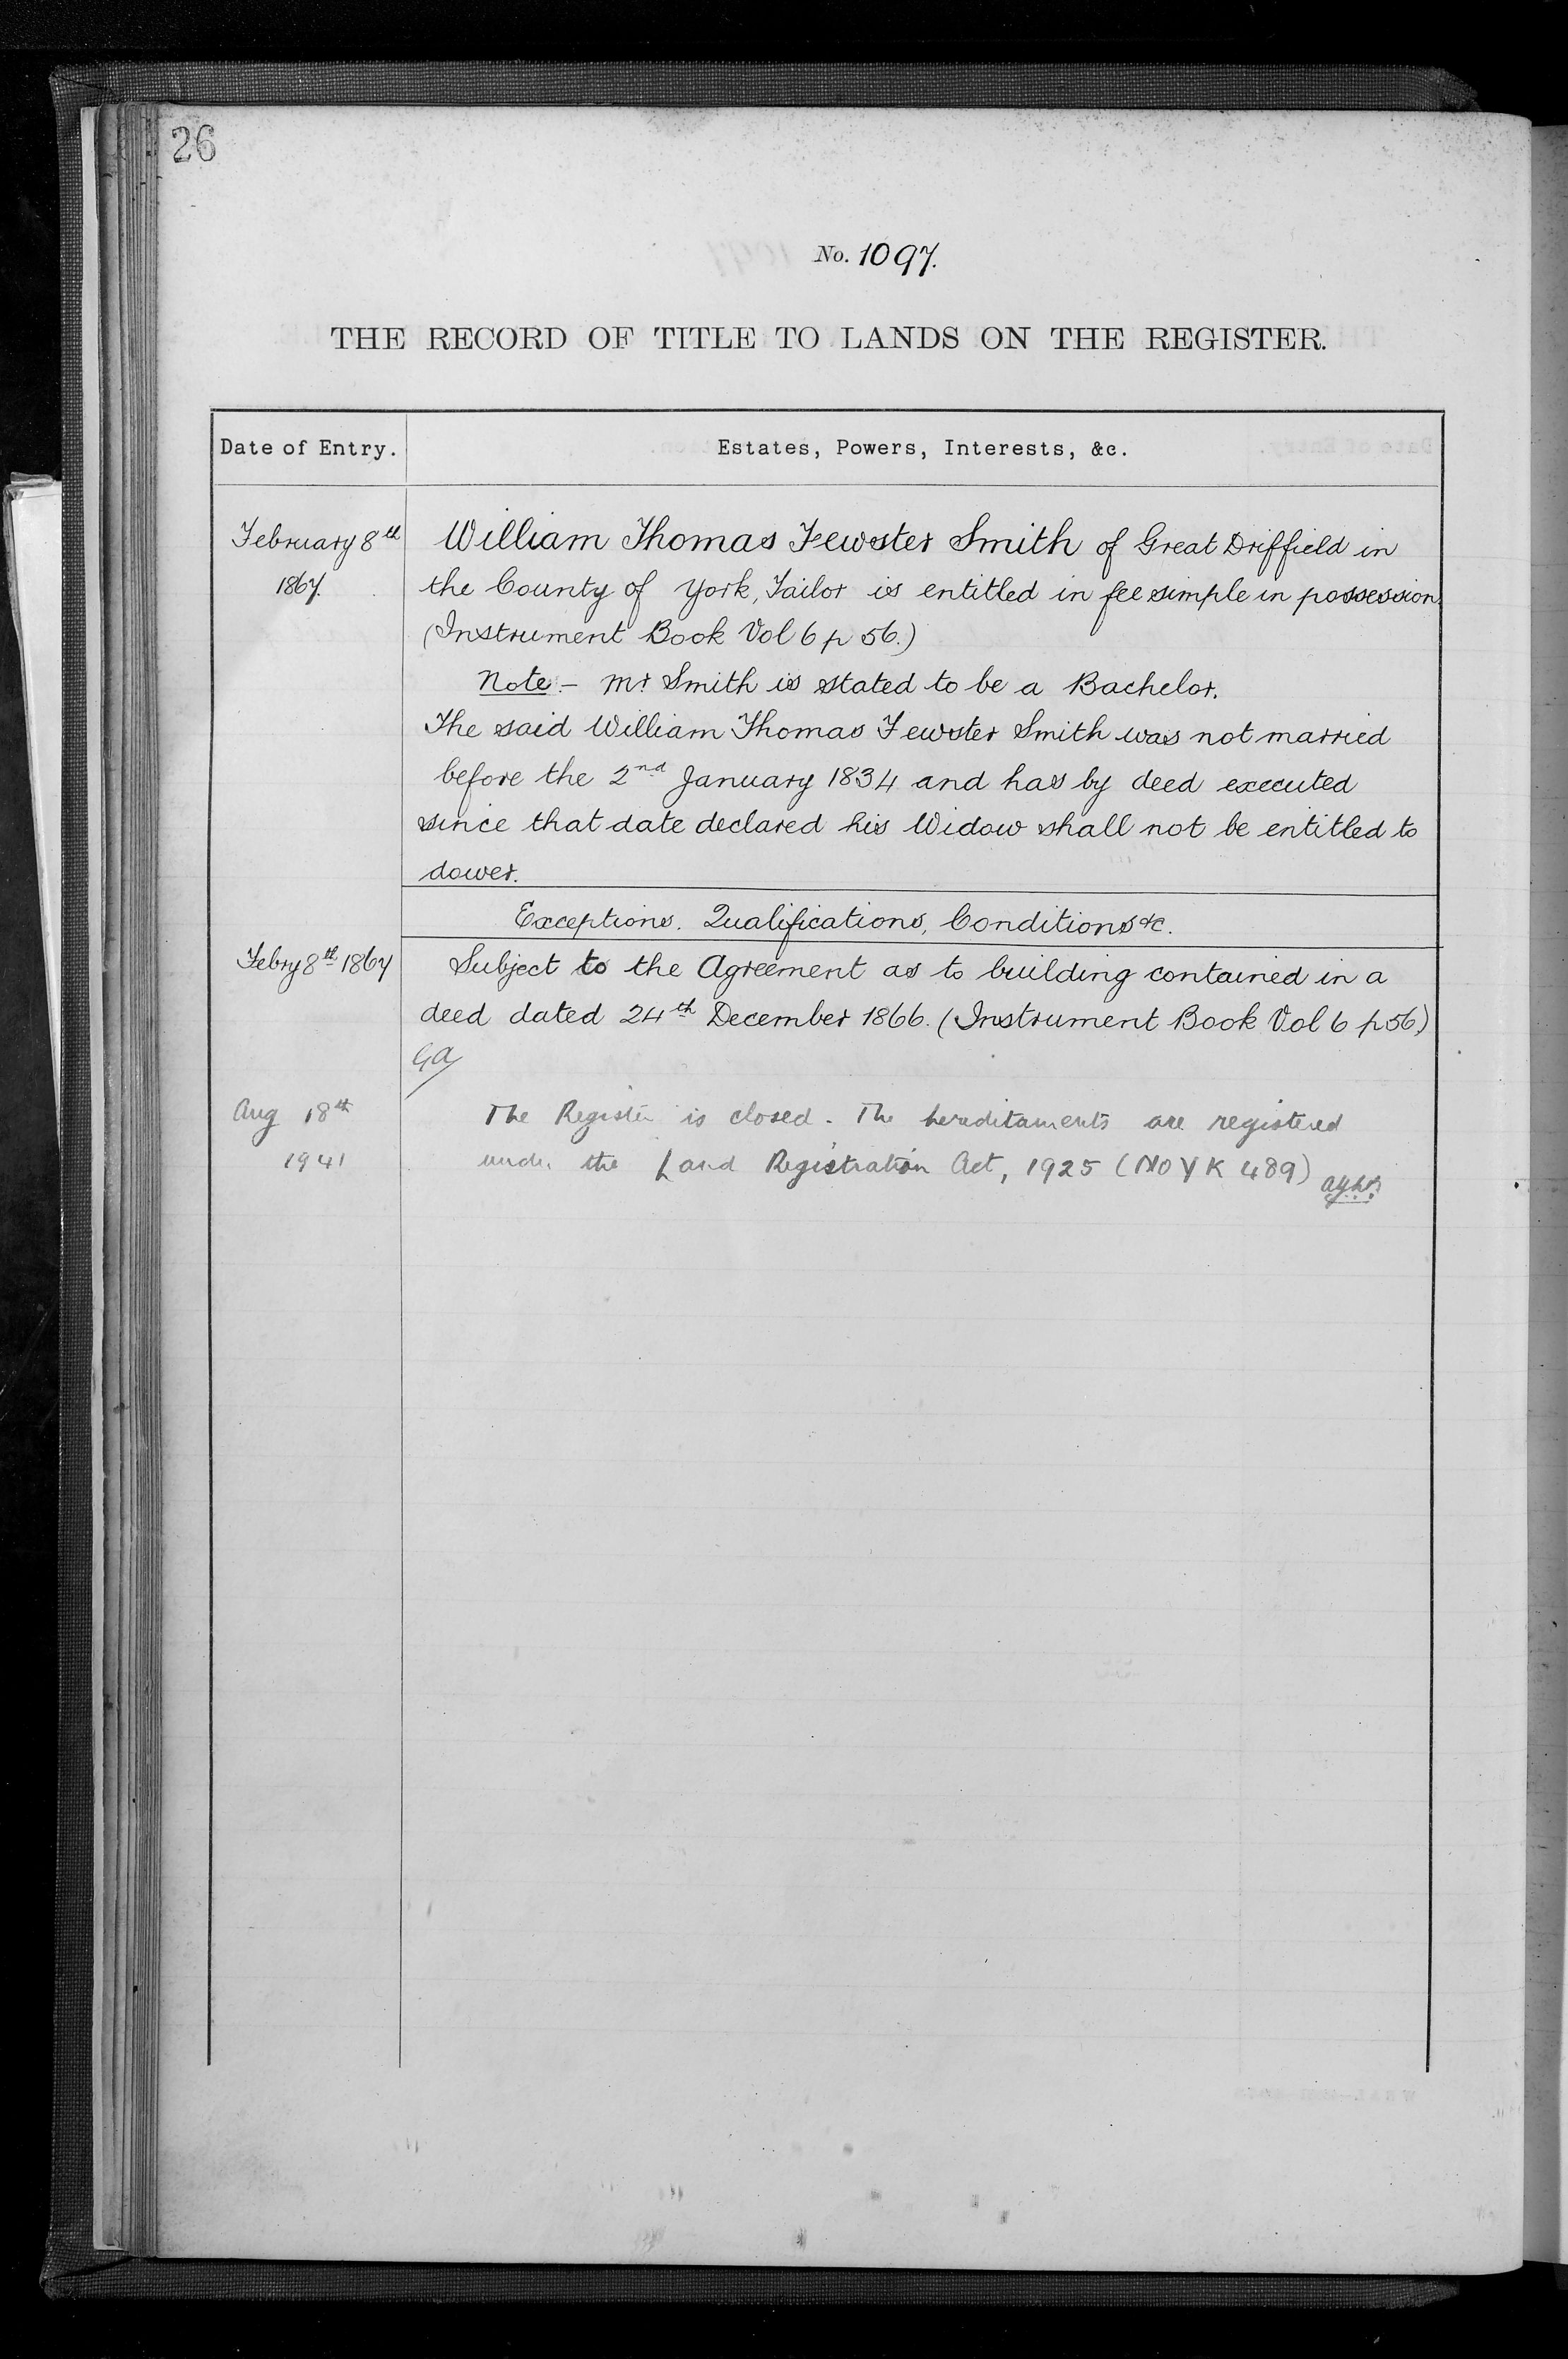 26
No. 1097.
THE RECORD OF TITLE TO LANDS ON THE REGISTER.
Date of Entry.
Estates, Powers, Interests, &c.
February 8th
1867.
William Thomas Fewster Smith of Great Driffield in
the County of York, Tailor is entitled in fee simple in possession.
(Instrument Book Vol 6 p 56.)
Note:- Mr Smith is stated to be a Bachelor.
The said William Thomas Fewster Smith was not married
before the 2nd January 1834 and has by deed executed
since that date declared his Widow shall not be entitled to
dower.
Exceptions. Qualifications, Conditions &c.
Febry 8th 1867
Subject to the Agreement as to building contained in a
deed dated 24th December 1866. (Instrument Book Vol 6 p 56.)
GA
Aug 18th
1941
The Register is closed. The hereditaments are registered
under the Land Registration Act, 1925 (No YK 489)